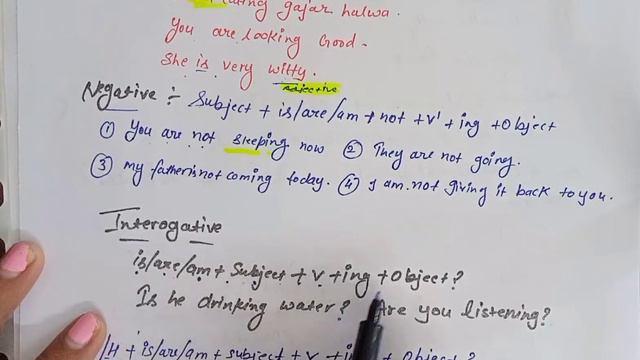 eating gajar halwa.
You are looking Good.
She is very witty.
adjective
Negative :- Subject + is/are/am + not + V' + ing + Object
① You are not sleeping now ② They are not going.
③ my father is not coming today. ④ I am not giving it back to you.
Interogative
is/are/am + Subject + V + ing + Object?
Is he drinking water? Are you listening?
/H + is/are/am + subject + V + ing + Object?